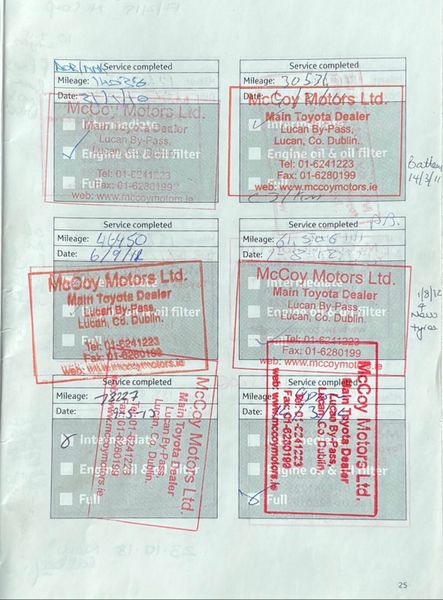 Service completed
Mileage:
Date:
McCoy Motors Ltd.
Main Toyota Dealer
Lucan By-Pass,
Lucan, Co. Dublin.
Tel: 01-6241223
Fax: 01-6280199
web: www.mccoymotors.ie
Intermediate
Engine oil & oil filter
Full
Service completed
Mileage: 30536
Date:
McCoy Motors Ltd.
Main Toyota Dealer
Lucan By-Pass,
Lucan, Co. Dublin.
Tel: 01-6241223
Fax: 01-6280199
web: www.mccoymotors.ie
Intermediate
Engine oil & oil filter
Full
14/3/11
Service completed
Mileage: 46450
Date: 6/9/11
McCoy Motors Ltd.
Main Toyota Dealer
Lucan By-Pass,
Lucan, Co. Dublin.
Tel: 01-6241223
Fax: 01-6280199
web: www.mccoymotors.ie
Full
Service completed
Mileage:
Date:
McCoy Motors Ltd.
Main Toyota Dealer
Lucan By-Pass,
Lucan, Co. Dublin.
Tel: 01-6241223
Fax: 01-6280199
web: www.mccoymotors.ie
Intermediate
Full
1/8/12
4
New
tyres
Service completed
Mileage:
Date:
Intermediate
Engine oil & oil filter
Full
McCoy Motors Ltd.
Main Toyota Dealer
Lucan By-Pass,
Lucan, Co. Dublin.
Tel: 01-6241223
Fax: 01-6280199
web: www.mccoymotors.ie
Service completed
Mileage:
Date:
Intermediate
Engine oil & oil filter
Full
McCoy Motors Ltd.
Main Toyota Dealer
Lucan By-Pass,
Lucan, Co. Dublin.
Tel: 01-6241223
Fax: 01-6280199
web: www.mccoymotors.ie
25